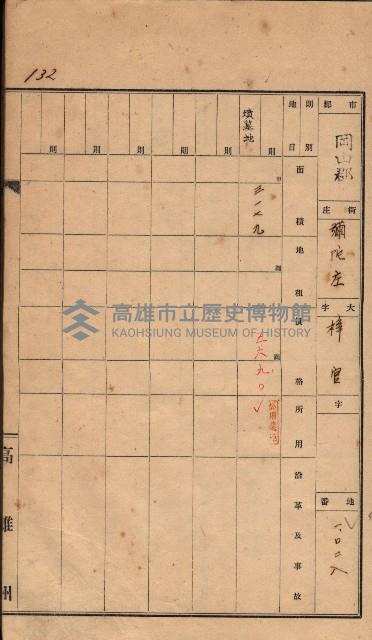 132
市郡 岡山郡
街庄 彌陀庄
大字 梓官
字
地番 一〇二八
則別
地目
面積
地租
價格
所用
沿革及事故
墳墓地
則
甲
三一七九
則
則
則
則
則
高雄市立歷史博物館
KAOHSIUNG MUSEUM OF HISTORY
高雄州